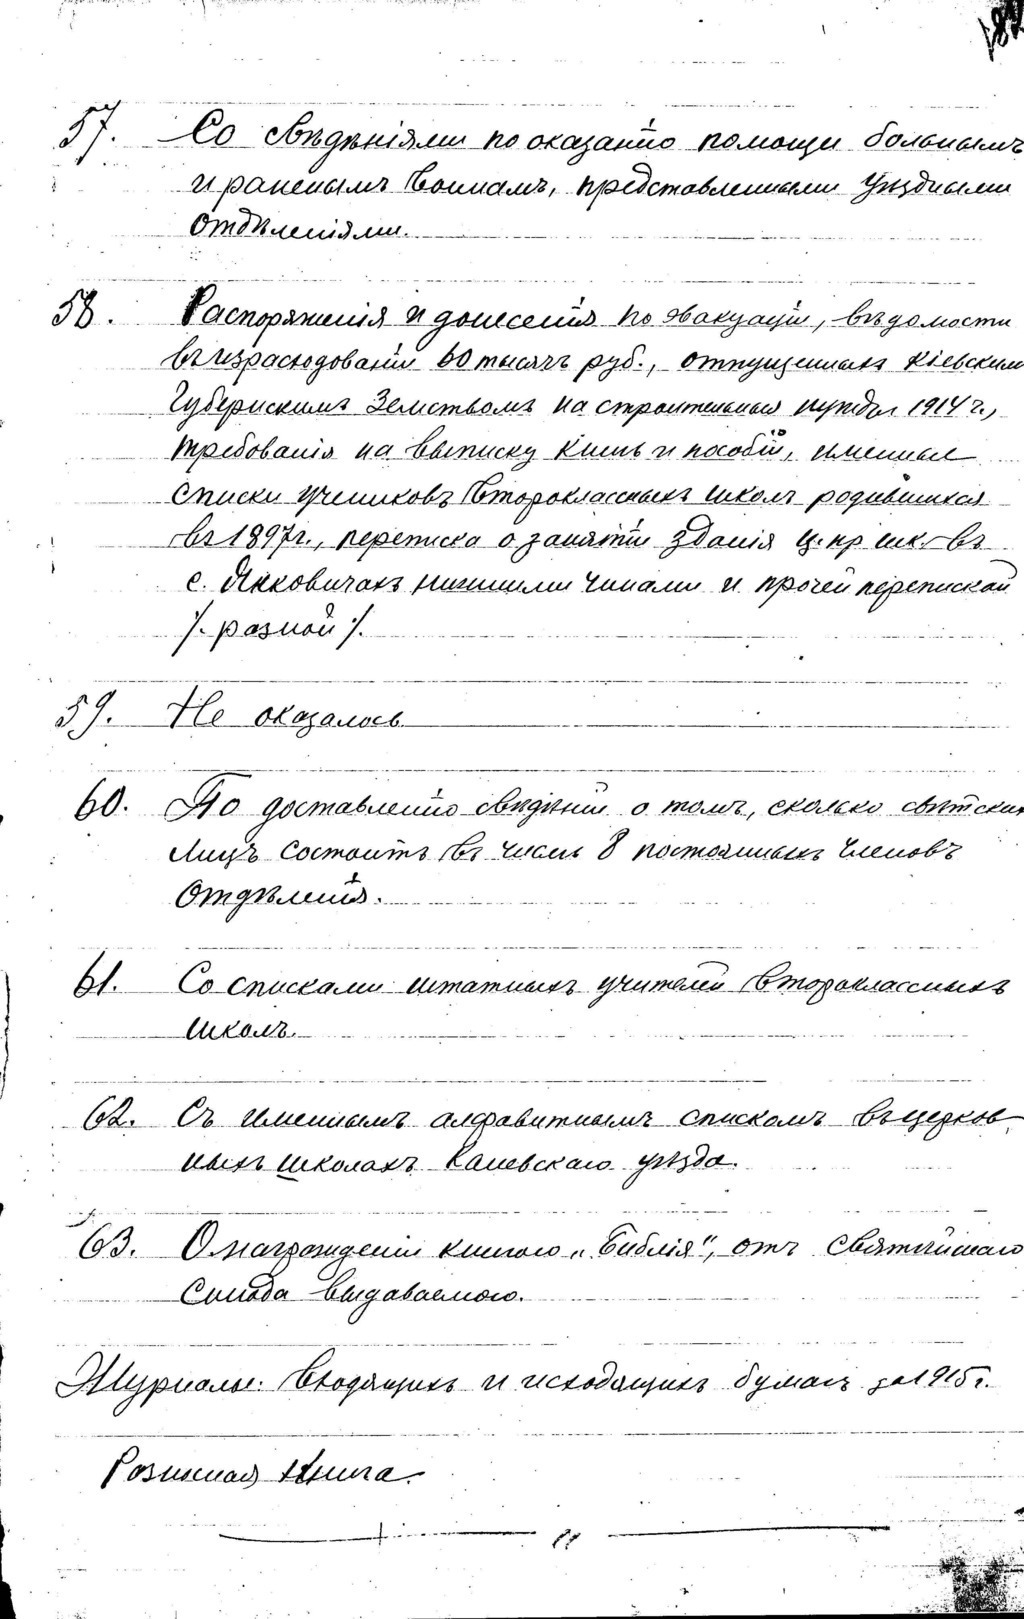 57. Со свѣдѣніями по оказанію помощи больнымъ
и раненымъ воинамъ, представленными уѣздными
Отдѣленіями.
58. Распоряженія и донесенія по эвакуаціи, вѣдомости
въ израсходованіи 60 тысячъ руб., отпущенныхъ Кіевскимъ
Губернскимъ Земствомъ на строительныя нужды 1914 г.,
требованія на выписку книгъ и пособій, именные
списки учениковъ второклассныхъ школъ родившихся
въ 1897 г., переписка о занятіи зданія ц. пр. шк. въ
с. Янковичахъ нижними чинами и прочей перепиской
/. разной /.
59. Не оказалось
60. По доставленію свѣдѣній о томъ, сколько свѣтскихъ
лицъ состоитъ въ числѣ 8 постоянныхъ членовъ
Отдѣленія.
61. Со списками штатныхъ учителей второклассныхъ
школъ.
62. Съ именнымъ алфавитнымъ спискомъ въ церков
ныхъ школахъ Каневскаго уѣзда.
63. О награжденіи книгою „Библія", отъ Святѣйшаго
Синода выдаваемою.
Журналы: входящихъ и исходящихъ бумагъ за 1915 г.
Разносная книга.